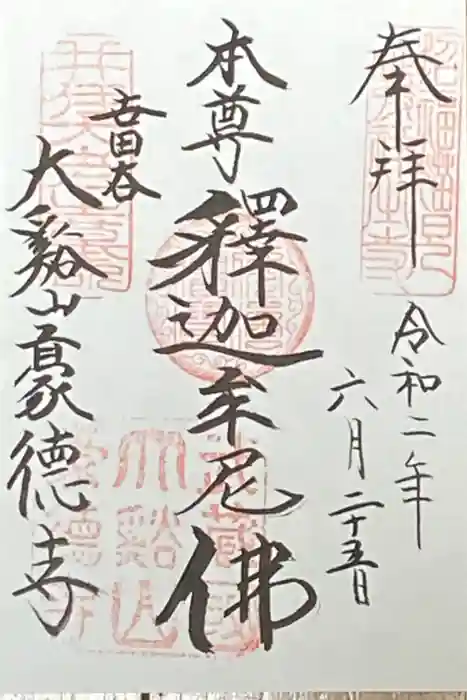 奉拝
令和二年
六月二十五日
本尊
釋迦牟尼佛
世田谷
大谿山豪德寺
武蔵国
大谿山
豪徳寺